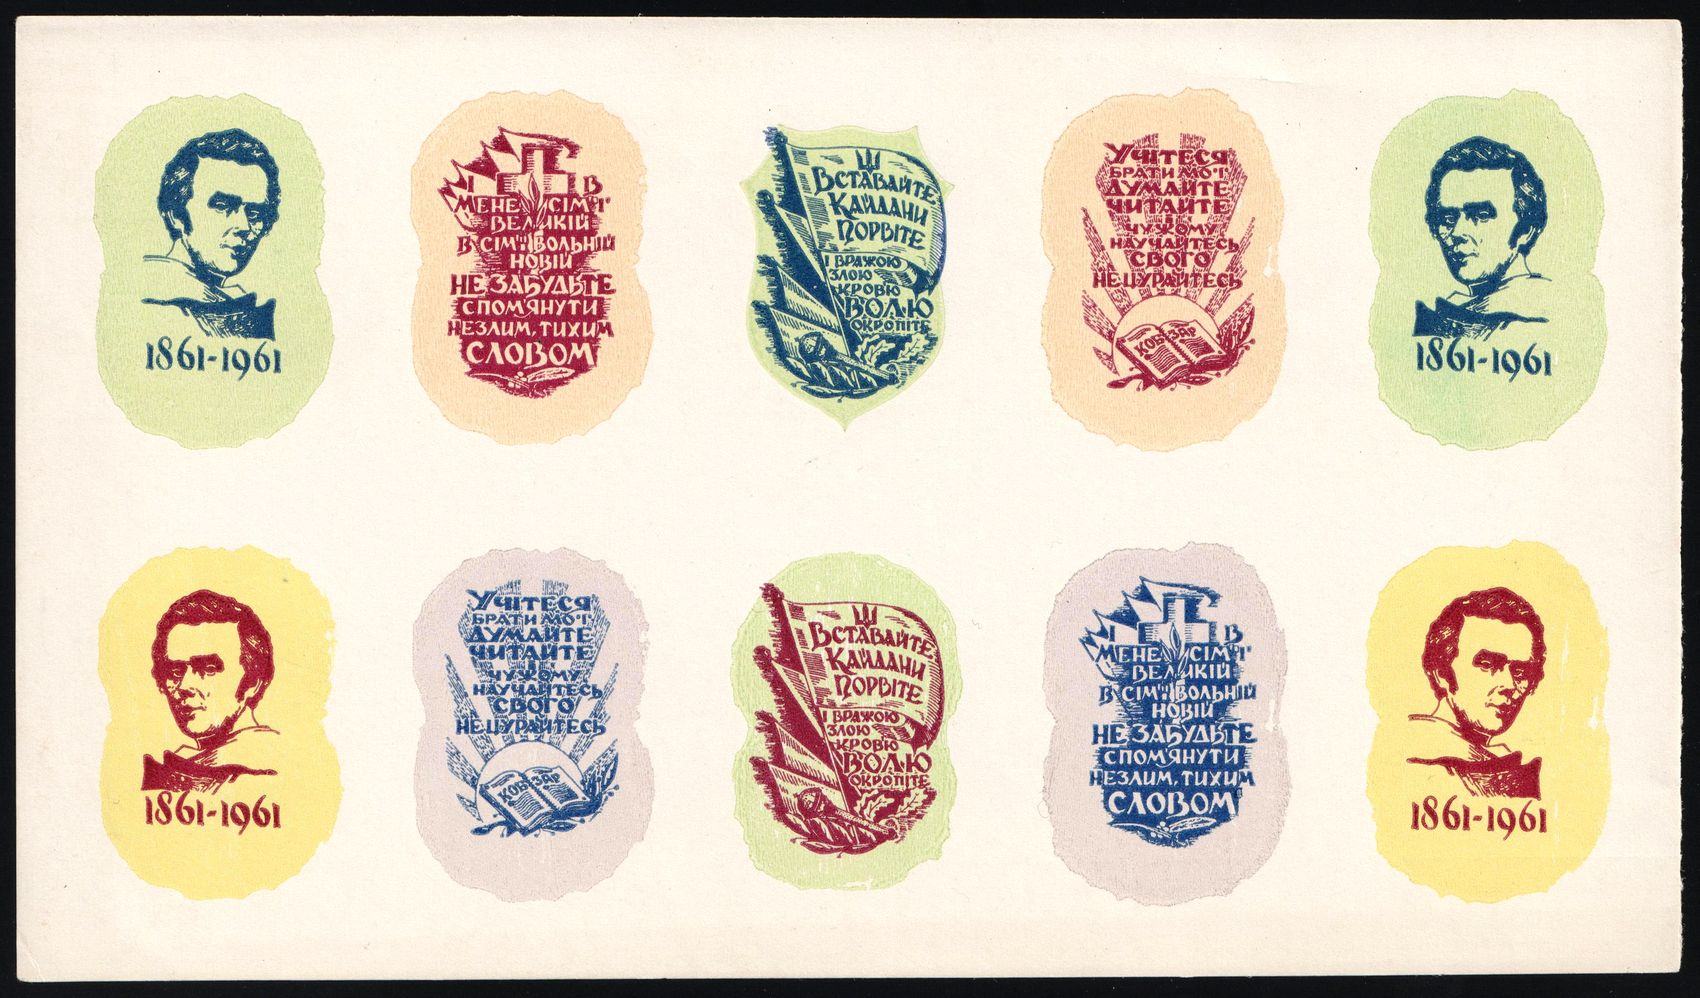 1861-1961
І В
МЕНЕ СІМ'Ї
ВЕЛИКІЙ
В СІМ'Ї ВОЛЬНІЙ
НОВІЙ
НЕ ЗАБУДЬТЕ
СПОМ'ЯНУТИ
НЕЗЛИМ, ТИХИМ
СЛОВОМ
ВСТАВАЙТЕ
КАЙДАНИ
ПОРВІТЕ
І ВРАЖОЮ
ЗЛОЮ
КРОВЮ
ВОЛЮ
ОКРОПІТЕ
УЧІТЕСЯ
БРАТИ МОЇ
ДУМАЙТЕ
ЧИТАЙТЕ
І
ЧУЖОМУ
НАУЧАЙТЕСЬ
СВОГО
НЕ ЦУРАЙТЕСЬ
КОБЗАР
1861-1961
1861-1961
УЧІТЕСЯ
БРАТИ МОЇ
ДУМАЙТЕ
ЧИТАЙТЕ
І
ЧУЖОМУ
НАУЧАЙТЕСЬ
СВОГО
НЕ ЦУРАЙТЕСЬ
КОБЗАР
ВСТАВАЙТЕ
КАЙДАНИ
ПОРВІТЕ
І ВРАЖОЮ
ЗЛОЮ
КРОВЮ
ВОЛЮ
ОКРОПІТЕ
І В
МЕНЕ СІМ'Ї
ВЕЛИКІЙ
В СІМ'Ї ВОЛЬНІЙ
НОВІЙ
НЕ ЗАБУДЬТЕ
СПОМ'ЯНУТИ
НЕЗЛИМ, ТИХИМ
СЛОВОМ
1861-1961